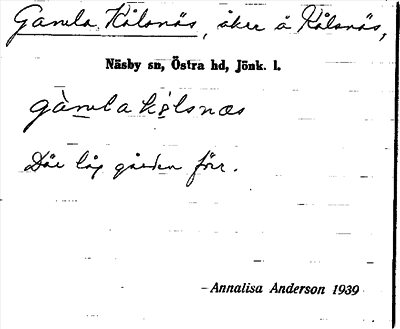 Gamla Kålsnäs, åker å Kålsnäs,
Näsby sn, Östra hd, Jönk. l.
gàmla kͅlsnæs
Där låg gården förr.
Annalisa Anderson 1939